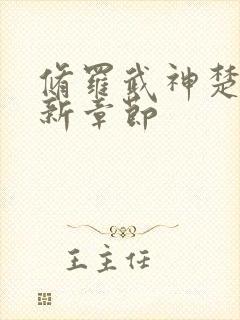 脩羅武神楚
新章節
王主任